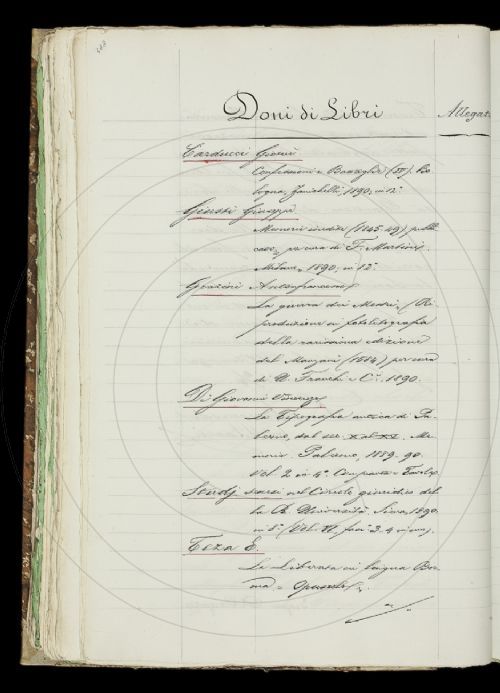 Doni di Libri
Allegat
Carducci Giosuè
Confessioni e Battaglie (IV). Bo-
logna, Zanichelli, 1890, in 12°
Giusti Giuseppe
Memorie inedite (1845-49) pubbli-
cate per cura di F. Martini.
Milano, 1890, in 12°.
Grazzini Antonfrancesco
La guerra dei Mostri, (Ri-
produzione in fotolitografia
della rarissima edizione
del Manzani (1584) per cura
di U. Franchi e C.i 1890.
Di Giovanni Vincenzo
La Tipografia antica di Pa-
lermo, dal sec. al XX. Me-
morie. Palermo, 1889-90.
Vol. 2 in 4° Con piante e Tavole.
Studj senesi nel Circolo giuridico del-
la R. Università. Siena, 1890.
in 8° (Vol. VI, fasc. 3. 4 in un).
Teza E.
in lingua Bir-